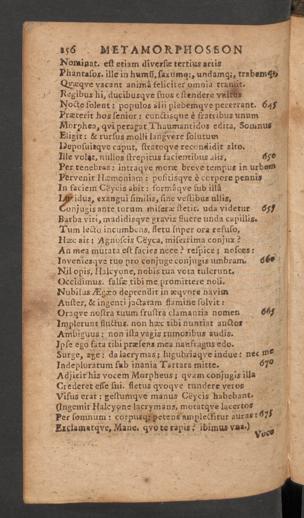 256 METAMORPHOSEON
Nominat. est etiam diversæ tertius artis
Phantasos. ille in humũ, saxumq;, undamq;, trabemq;,
Quæqve vacant animâ feliciter omnia transit.
Regibus hi, ducibusqve suos ostendere vultus
Nocte solent: populos alii plebemqve pererrant. 645
Præterit hos senior: cunctisque è fratribus unum
Morphea, qvi peragat Thaumantidos edita, Somnus
Eligit: & rursus molli langvore solutum
Deposuitqve caput, stratoqve recondidit alto.
Ille volat, nullos strepitus facientibus alis, 650
Per tenebras: intraqve moræ breve tempus in urbem
Pervenit Hæmoniam: positisqve è corpore pennis
In faciem Cëycis abit: formâqve sub illâ
Luridus, exangui similis, sine vestibus ullis,
Conjugis ante torum miseræ stetit. uda videtur 655
Barba viri, madidisqve gravis fluere unda capillis.
Tum lecto incumbens, fletu super ora refuso,
Hæc ait: Agnoscis Cëyca, miserrima conjux?
An mea mutata est facies nece? respice; nosces:
Inveniesqve tuo pro conjuge conjugis umbram. 660
Nil opis, Halcyone, nobis tua vota tulerunt.
Occidimus. falso tibi me promittere noli.
Nubilus Ægæo deprendit in æqvore navim
Auster, & ingenti jactatam flamine solvit:
Oraqve nostra tuum frustra clamantia nomen 665
Implerunt fluctus. non hæc tibi nuntiat auctor
Ambiguus; non ista vagis rumoribus audis.
Ipse ego fata tibi præsens mea naufragus edo.
Surge, age; da lacrymas; lugubriaqve indue: nec me
Indeploratum sub inania Tartara mitte. 670
Adjicit his vocem Morpheus; qvam conjugis illa
Crederet esse sui. fletus qvoqve fundere veros
Visus erat: gestumqve manus Cëycis habebant.
(Ingemit Halcyone lacrymans, motatqve lacertos
Per somnum: corpusq; petens amplectitur auras: 675
Exclamatqve, Mane. qvo te rapis? ibimus unà.)
Voce